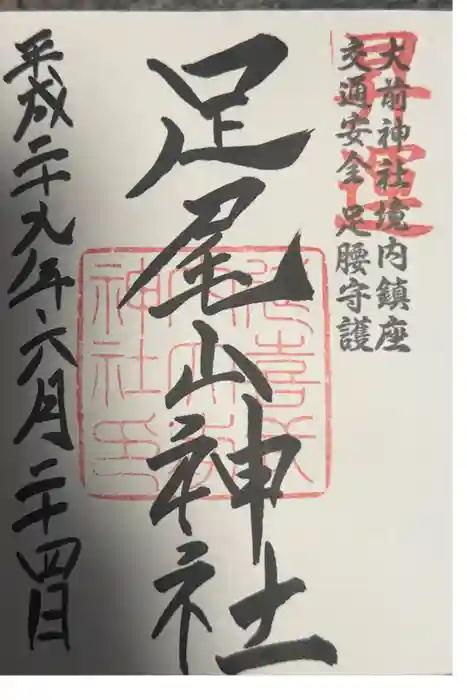 大前神社境内鎮座
交通安全 足腰守護
昇運
足尾山神社
平成二十九年六月二十四日